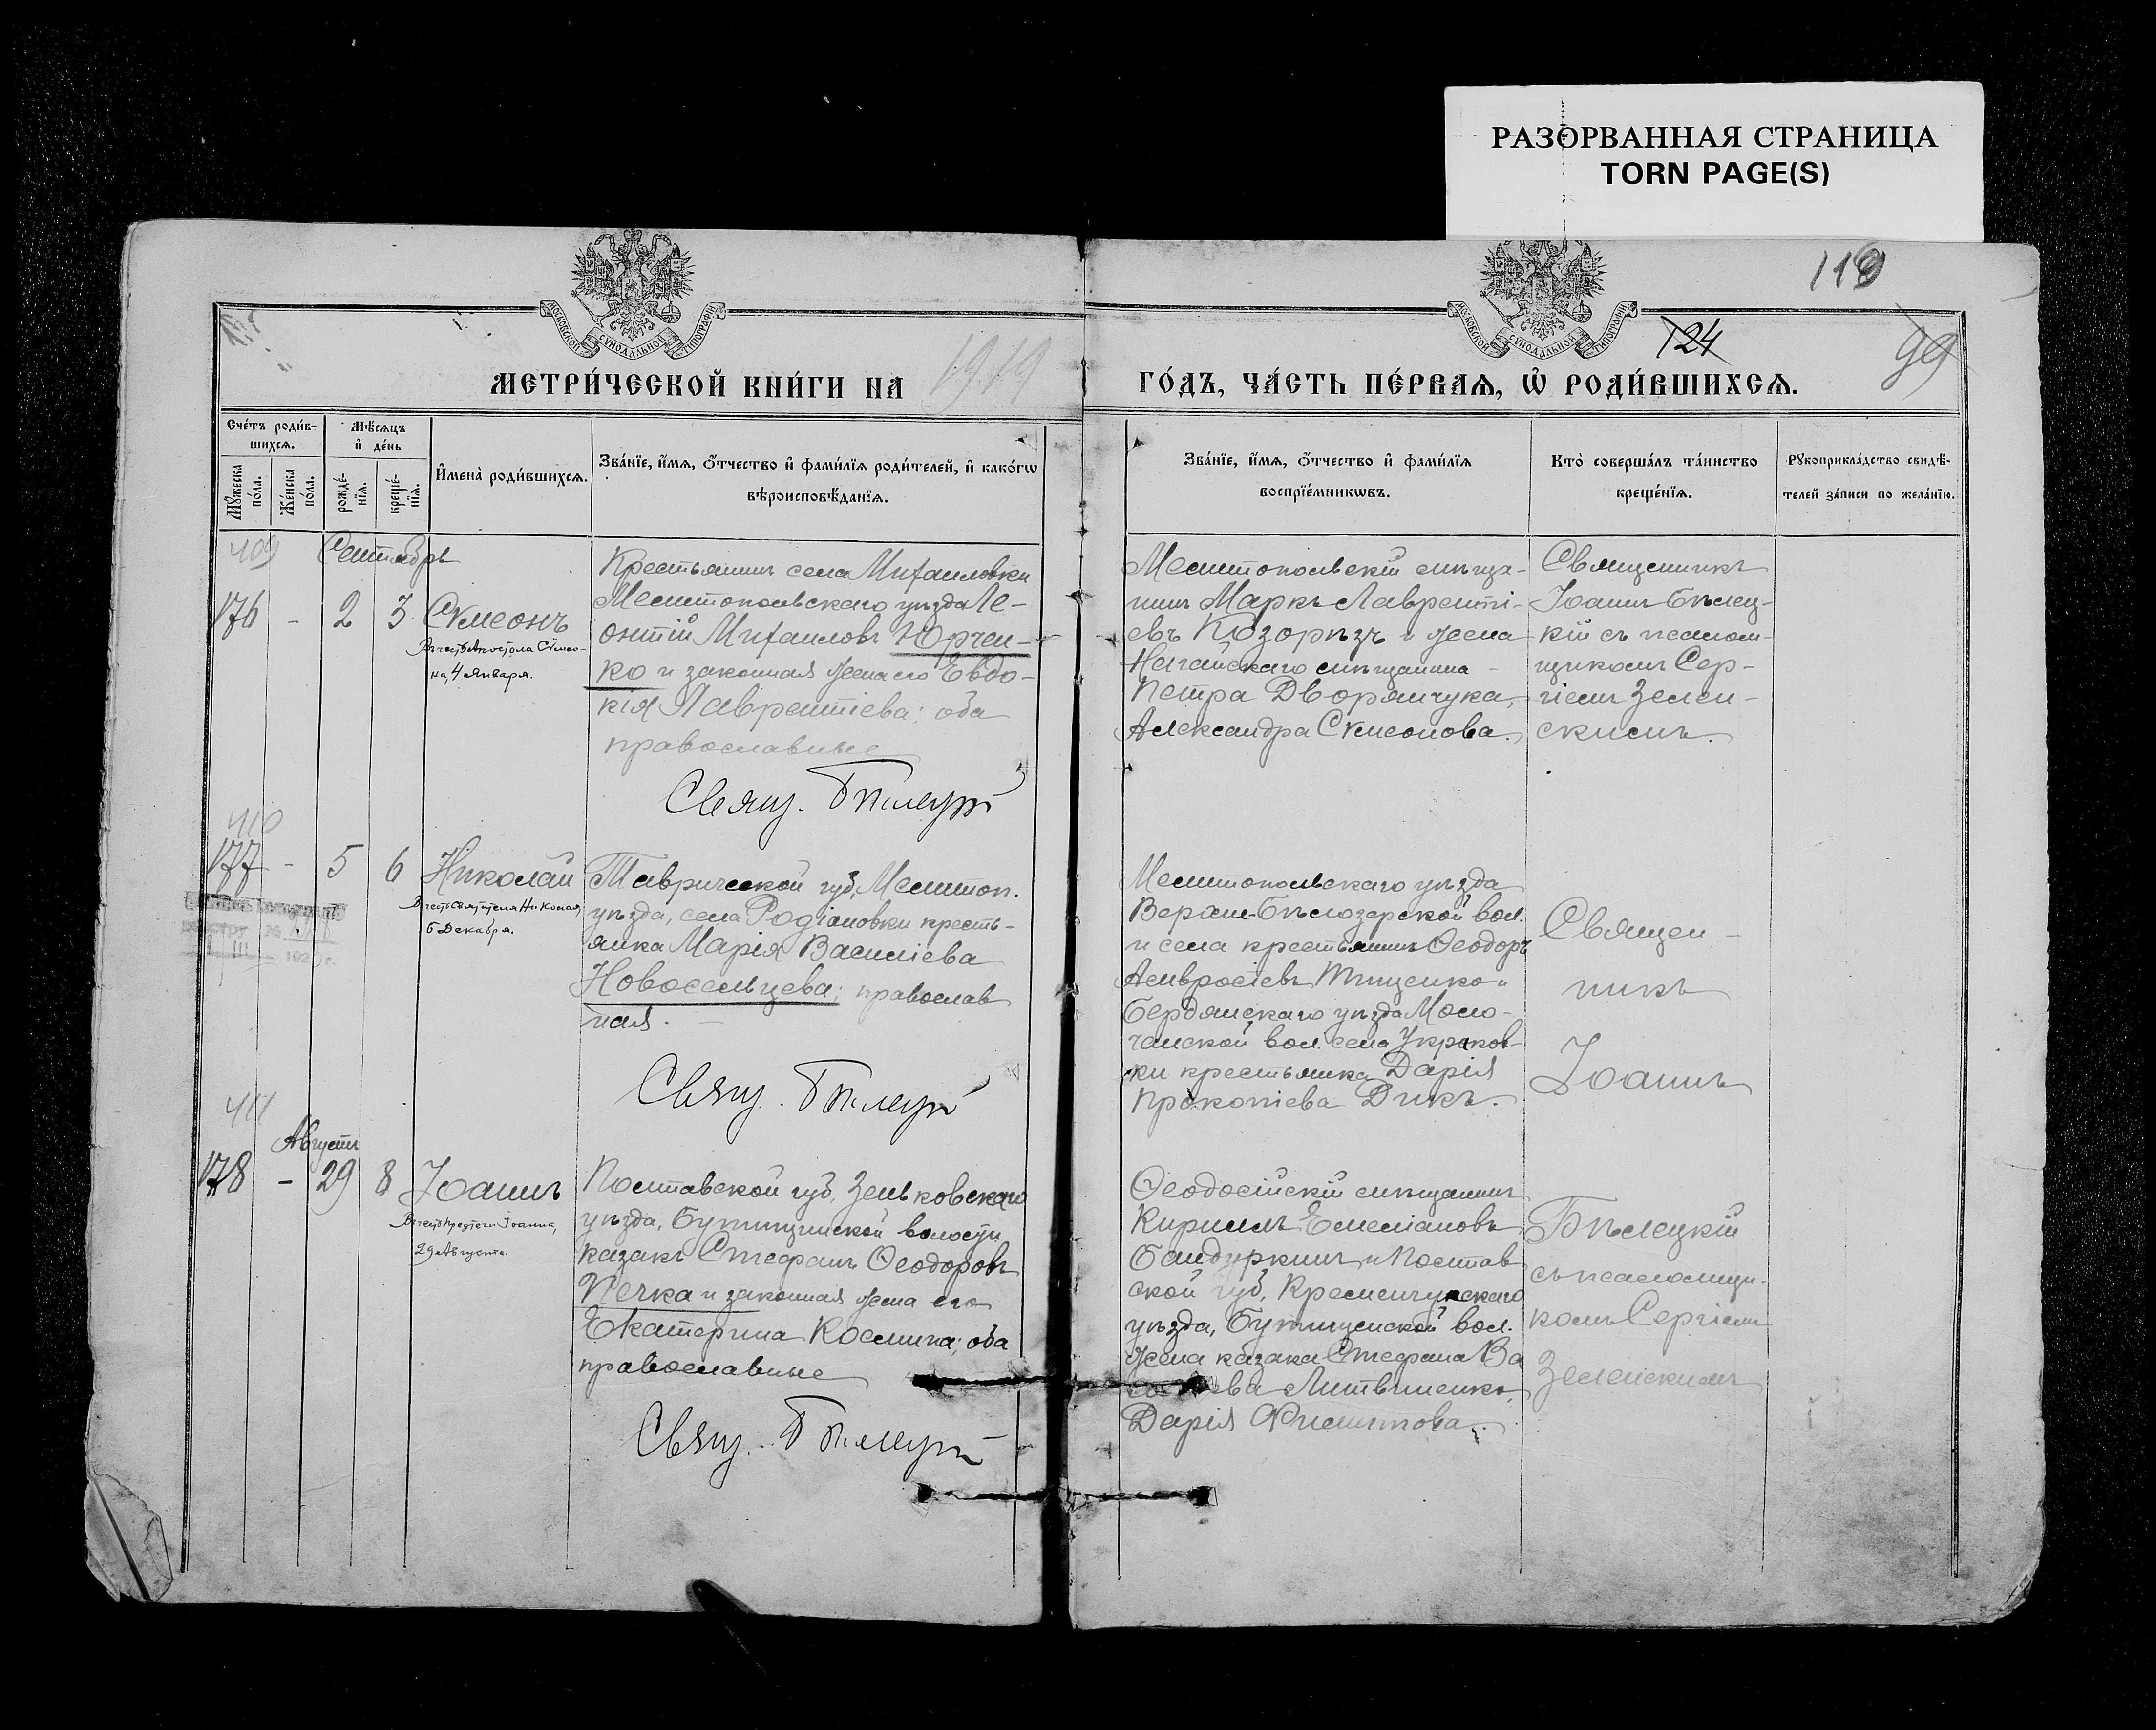 РАЗОРВАННАЯ СТРАНИЦА
TORN PAGE(S)
118
124
99
МОСКОВСКОЙ СѴНОДАЛЬНОЙ ТИПОГРАФІИ
МОСКОВСКОЙ СѴНОДАЛЬНОЙ ТИПОГРАФІИ
МЕТРИ́ЧЕСКОЙ КНИ́ГИ НА 1919
ГО́ДЪ, ЧА́СТЬ ПЕ́РВАЯ, Ѡ҆ РОДИ́ВШИХСЯ.
Сче́тъ роди́в-
шихся.
Мѣ́сяцъ
и҆ де́нь
Мꙋ́жеска
по́ла.
Же́нска
по́ла.
рожде́-
нїя.
креще́-
нїя.
И҆мена̀ роди́вшихся.
Зва́нїе, и҆́мя, ѻ҆́тчество и҆ фами́лїя роди́телей, и҆ како́гѡ
вѣроисповѣ́данїя.
Зва́нїе, и҆́мя, ѻ҆́тчество и҆ фами́лїя
воспрїе́мникѡвъ.
Кто̀ соверша́лъ та́инство
креще́нїя.
Рꙋкоприкла́дство свидѣ́-
телей за́писи по жела́нїю.
409
Сентябрь
176 - 2 3 Сѵмеонъ
Въ честь Апостола Сѵмео-
на, 4 января.
Крестьянинъ села Михайловки
Мелитопольскаго уѣзда Ле-
онтій Михаиловъ Юрчен-
ко и законная жена его Евдо-
кія Лаврентіева; оба
православные
Свящ. Бѣлецкій
Мелитопольскій мѣща-
нинъ Маркъ Лавренті-
евъ Козорѣзъ и жена
Ногайскаго мѣщанина
Петра Дворянчука,
Александра Сѵмеонова.
Священникъ
Іоаннъ Бѣлец-
кій съ псалом-
щикомъ Сер-
гіемъ Зелен-
скимъ.
410
177 - 5 6 Николай
Въ честь Святителя Николая,
6 Декабря.
Таврической губ., Мелитоп.
уѣзда, села Родіоновки кресть-
янка Марія Василіева
Новосельцева; православ
ная.
Свящ. Бѣлецкій
Мелитопольскаго уѣзда
Верхне-Бѣлозерской вол.
и села крестьянинъ Ѳеодоръ
Амвросіевъ Тищенко и
Бердянскаго уѣзда Моло-
чанской вол. села
ки крестьянка Дарія
Прокопіева Дикъ.
Священ-
никъ
Іоаннъ
411
Августъ
178 - 29 8 Іоаннъ
Въ честь Предтечи Іоанна,
29 Августа.
Полтавской губ. Зеньковскаго
уѣзда, волости
казакъ Стефанъ Ѳеодоровъ
Печка и законная жена его
Екатерина Космина; оба
православные
Свящ. Бѣлецкій
Ѳеодосійскій мѣщанинъ
Кириллъ Емеліановъ
Бандуркинъ и Полтав
ской губ. Кременчугскаго
уѣзда, вол.
жена казака Стефана Ва
Литвиненко,
Дарія Филиппова.
Бѣлецкій
съ псаломщи-
комъ Сергіемъ
Зеленскимъ